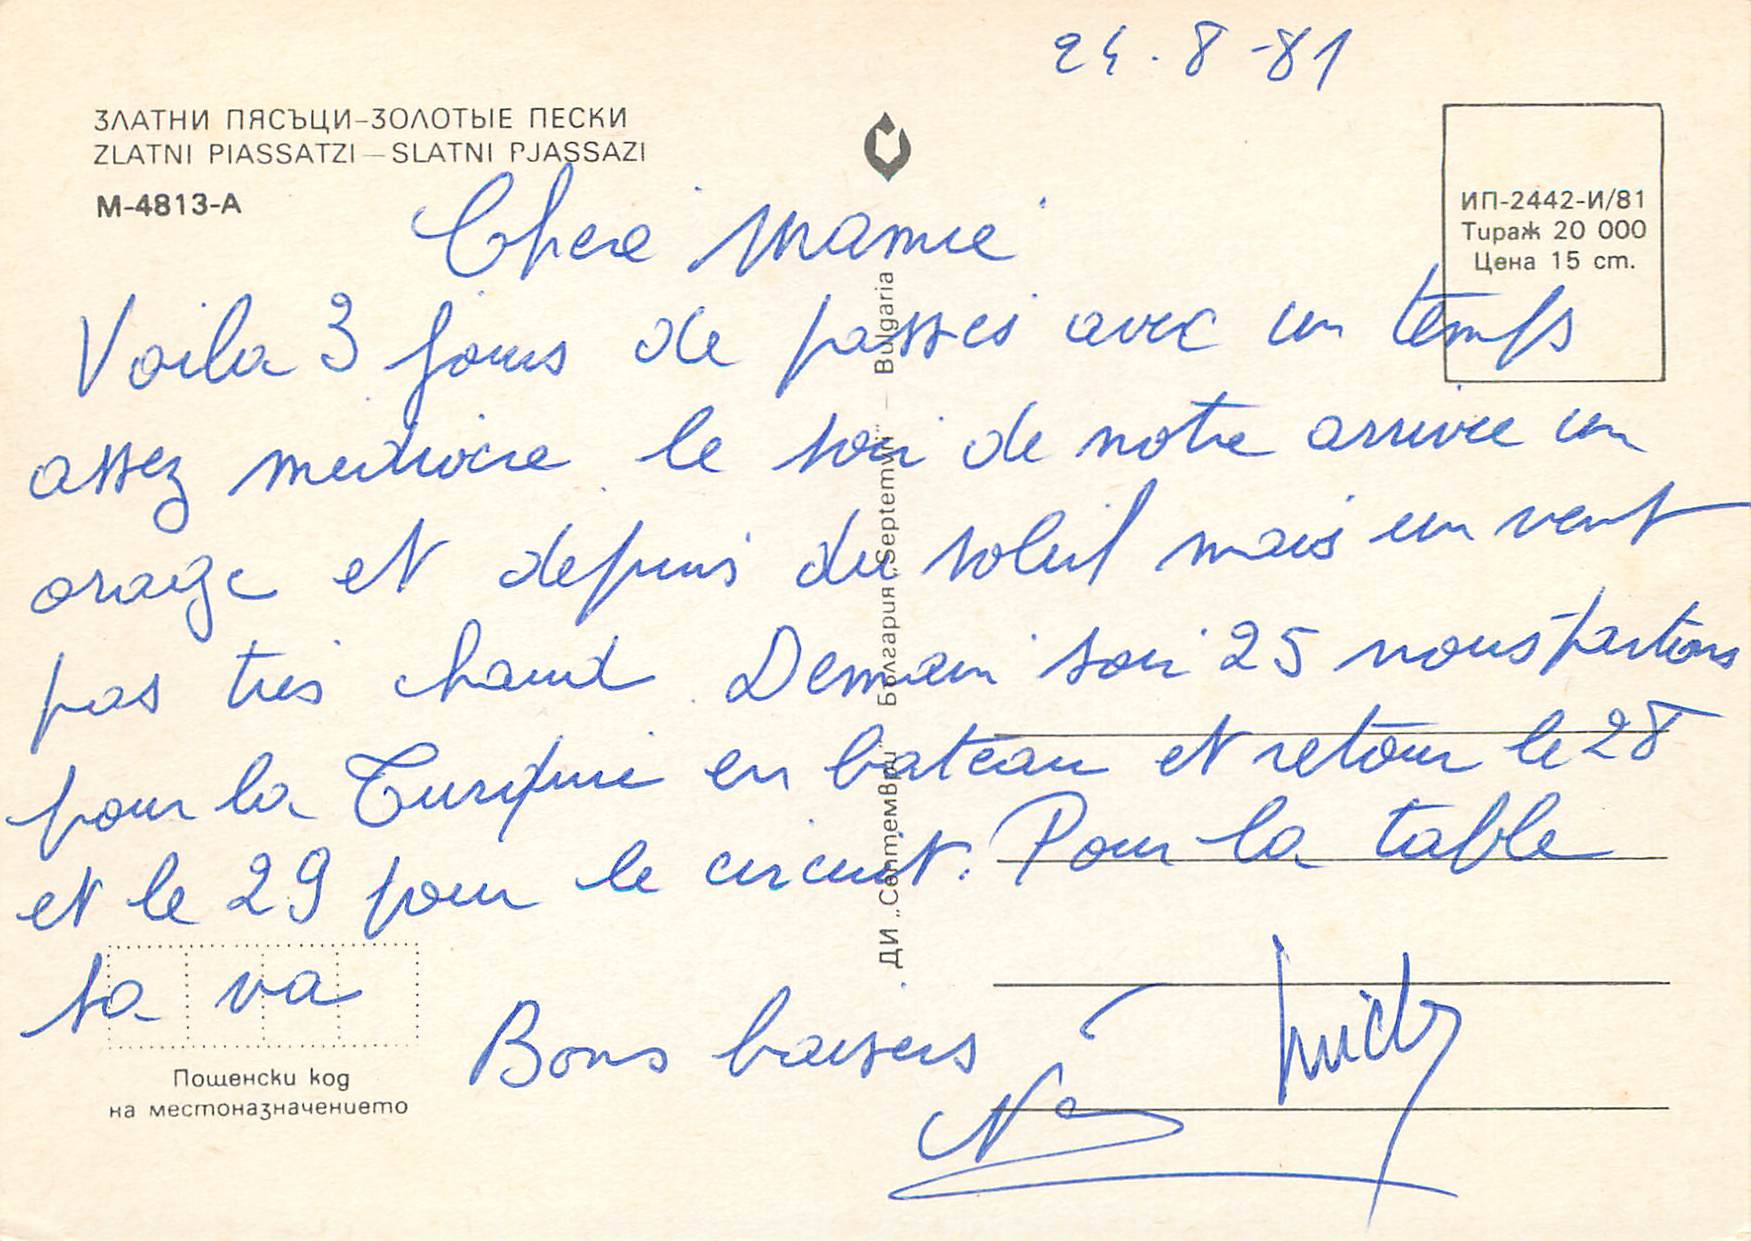 24.8-81
ЗЛАТНИ ПЯСЪЦИ–ЗОЛОТЫЕ ПЕСКИ
ZLATNI PIASSATZI – SLATNI PJASSAZI
М-4813-А
ИП-2442-И/81
Тираж 20 000
Цена 15 ст.
Chere Mamie
Voila 3 jours de passés avec un temps
assez mediocre le soir de notre arrivée un
orage et depuis du soleil mais un vent
pas très chaud. Demain soir 25 nous partons
pour la Turquie en bateau et retour le 28
et le 29 pour le circuit. Pour la table
sa va
Bons baisers
ДИ „Септември" България „Septemvri" – Bulgaria
Пощенски код
на местоназначението